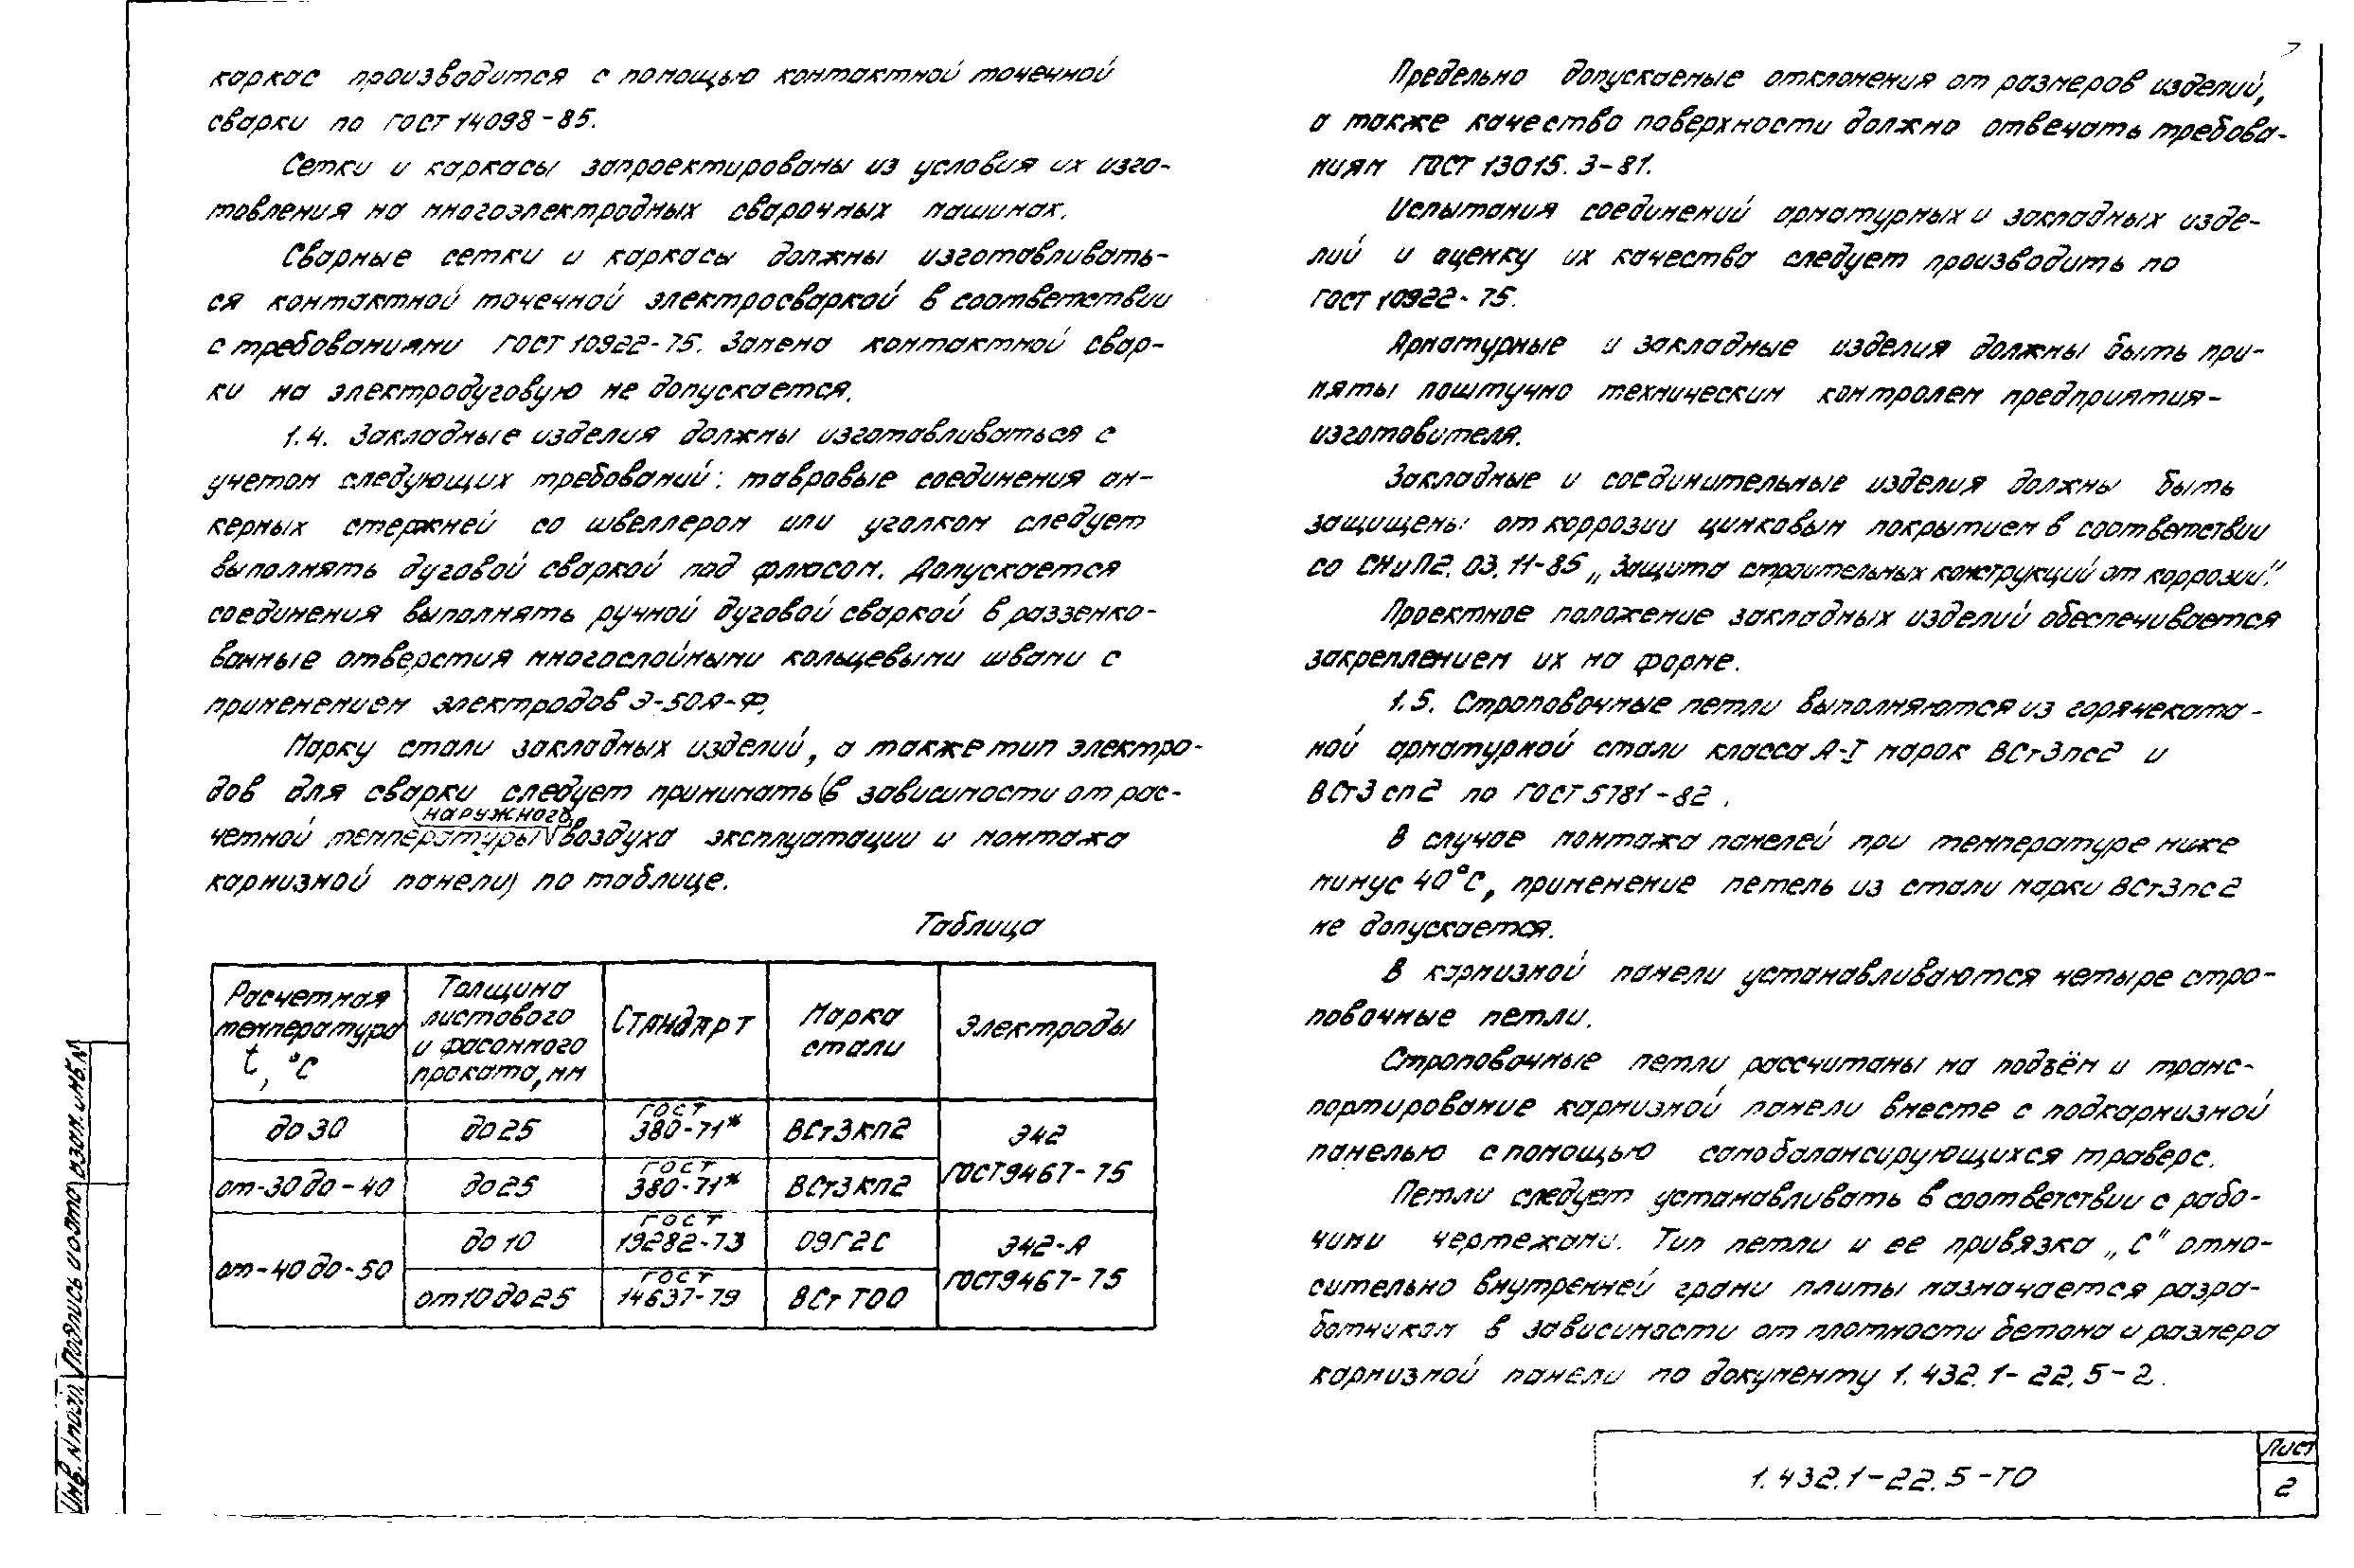 каркас производится с помощью контактной точечной
сварки по ГОСТ 14098-85.
Сетки и каркасы запроектированы из условия их изго-
товления на многоэлектродных сварочных машинах.
Сварные сетки и каркасы должны изготавливать-
ся контактной точечной электросваркой в соответствии
с требованиями ГОСТ 10922-75. Замена контактной свар-
ки на электродуговую не допускается.
1.4. Закладные изделия должны изготавливаться с
учетом следующих требований: тавровые соединения ан-
керных стержней со швеллером или уголком следует
выполнять дуговой сваркой под флюсом. Допускается
соединения выполнять ручной дуговой сваркой в раззенко-
ванные отверстия многослойными кольцевыми швами с
применением электродов Э-50А-Ф.
Марку стали закладных изделий, а также тип электро-
дов для сварки следует принимать (в зависимости от рас-
наружного
четной температуры воздуха эксплуатации и монтажа
карнизной панели) по таблице.
Таблица
Расчетная температура t, °С
Толщина листового и фасонного проката, мм
Стандарт
Марка стали
Электроды
до 30
до 25
ГОСТ 380-71*
ВСт3кп2
Э42 ГОСТ 9467-75
от-30 до-40
до 25
ГОСТ 380-71*
ВСт3кп2
от-40 до-50
до 10
ГОСТ 19282-73
09Г2С
Э42-А ГОСТ 9467-75
от 10 до 25
ГОСТ 14637-79
ВСт Т00
7
Предельно допускаемые отклонения от размеров изделий,
а также качество поверхности должно отвечать требова-
ниям ГОСТ 13015.3-81.
Испытания соединений арматурных и закладных изде-
лий и оценку их качества следует производить по
ГОСТ 10922-75.
Арматурные и закладные изделия должны быть при-
няты поштучно техническим контролем предприятия-
изготовителя.
Закладные и соединительные изделия должны быть
защищены от коррозии цинковым покрытием в соответствии
со СНиП2.03.11-85 „Защита строительных конструкций от коррозии".
Проектное положение закладных изделий обеспечивается
закреплением их на форме.
1.5. Строповочные петли выполняются из горячеката-
ной арматурной стали класса А-I марок ВСт3пс2 и
ВСт3сп2 по ГОСТ 5781-82.
В случае монтажа панелей при температуре ниже
минус 40°С, применение петель из стали марки ВСт3пс2
не допускается.
В карнизной панели устанавливаются четыре стро-
повочные петли.
Строповочные петли рассчитаны на подъём и транс-
портирование карнизной панели вместе с подкарнизной
панелью с помощью самобалансирующихся траверс.
Петли следует устанавливать в соответствии с рабо-
чими чертежами. Тип петли и ее привязка „С" отно-
сительно внутренней грани плиты назначается разра-
ботчиком в зависимости от плотности бетона и размера
карнизной панели по документу 1.432.1-22.5-2.
1.432.1-22.5-ТО
Лист
2
Инв. N подл
Подпись и дата
Взам. инв. N